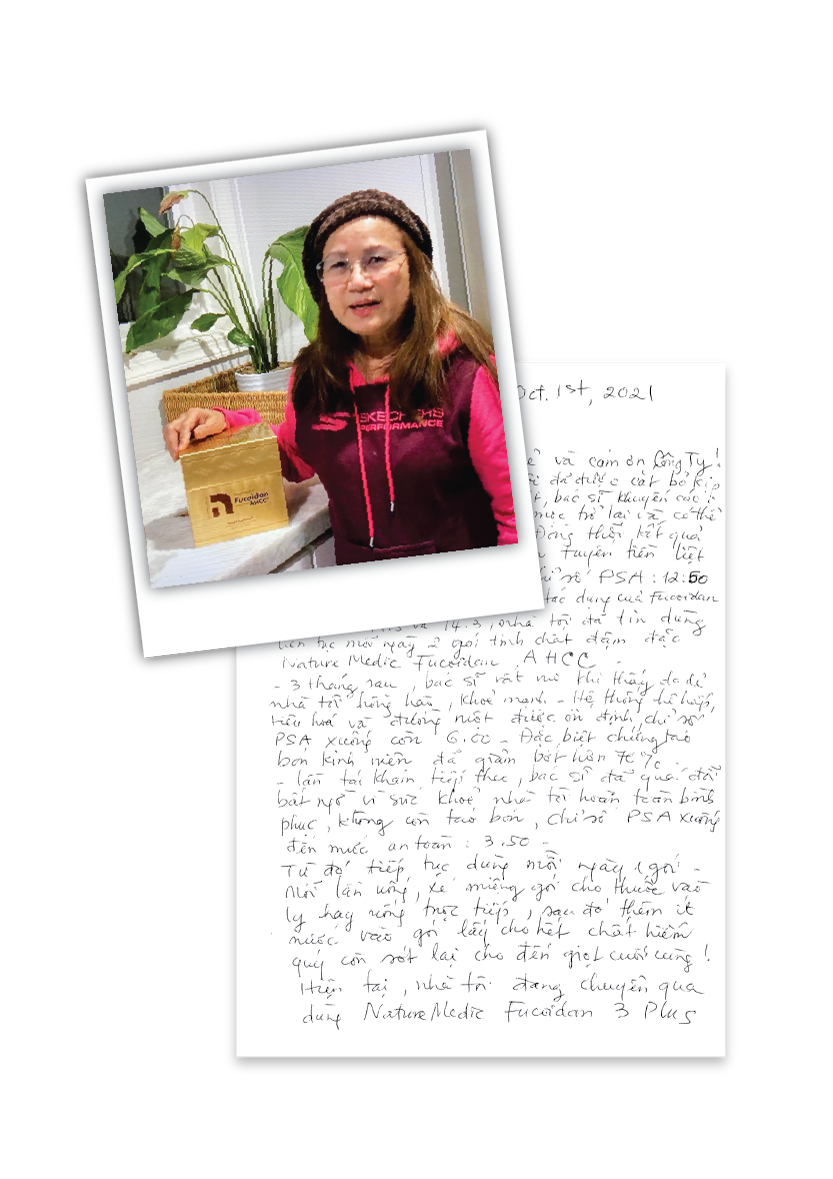 SKECHERS
PERFORMANCE
Fucoidan
AHCC
Oct. 1st, 2021
và cám ơn Công Ty!
đã được cắt bỏ kịp
bác sĩ khuyên các
trở lại và có thể
Đồng thời, kết quả
tuyến tiền liệt
số PSA : 12.50
tác dụng của Fucoidan
và 14.3, nhà tôi đã tin dùng
liên tục mỗi ngày 2 gói tinh chất đậm đặc
Nature Medic Fucoidan AHCC.
- 3 tháng sau, bác sĩ rất mê khi thấy da dẻ
nhà tôi hồng hào, khoẻ mạnh. - Hệ thống hô hấp,
tiêu hoá và đường ruột được ổn định, chỉ số
PSA xuống còn 6.00 - Đặc biệt chứng táo
bón kinh niên đã giảm bớt hơn 70%.
- lần tái khám tiếp theo, bác sĩ đã quá đỗi
bất ngờ vì sức khoẻ nhà tôi hoàn toàn bình
phục, không còn táo bón, chỉ số PSA xuống
đến mức an toàn : 3.50 -
Từ đó tiếp tục dùng mỗi ngày 1 gói -
Mỗi lần uống, xé miệng gói cho thuốc vào
ly hay uống trực tiếp, sau đó thêm ít
nước vào gói lấy cho hết chất hiếm
quý còn sót lại cho đến giọt cuối cùng!
Hiện tại, nhà tôi đang chuyển qua
dùng NatureMedic Fucoidan 3 Plus